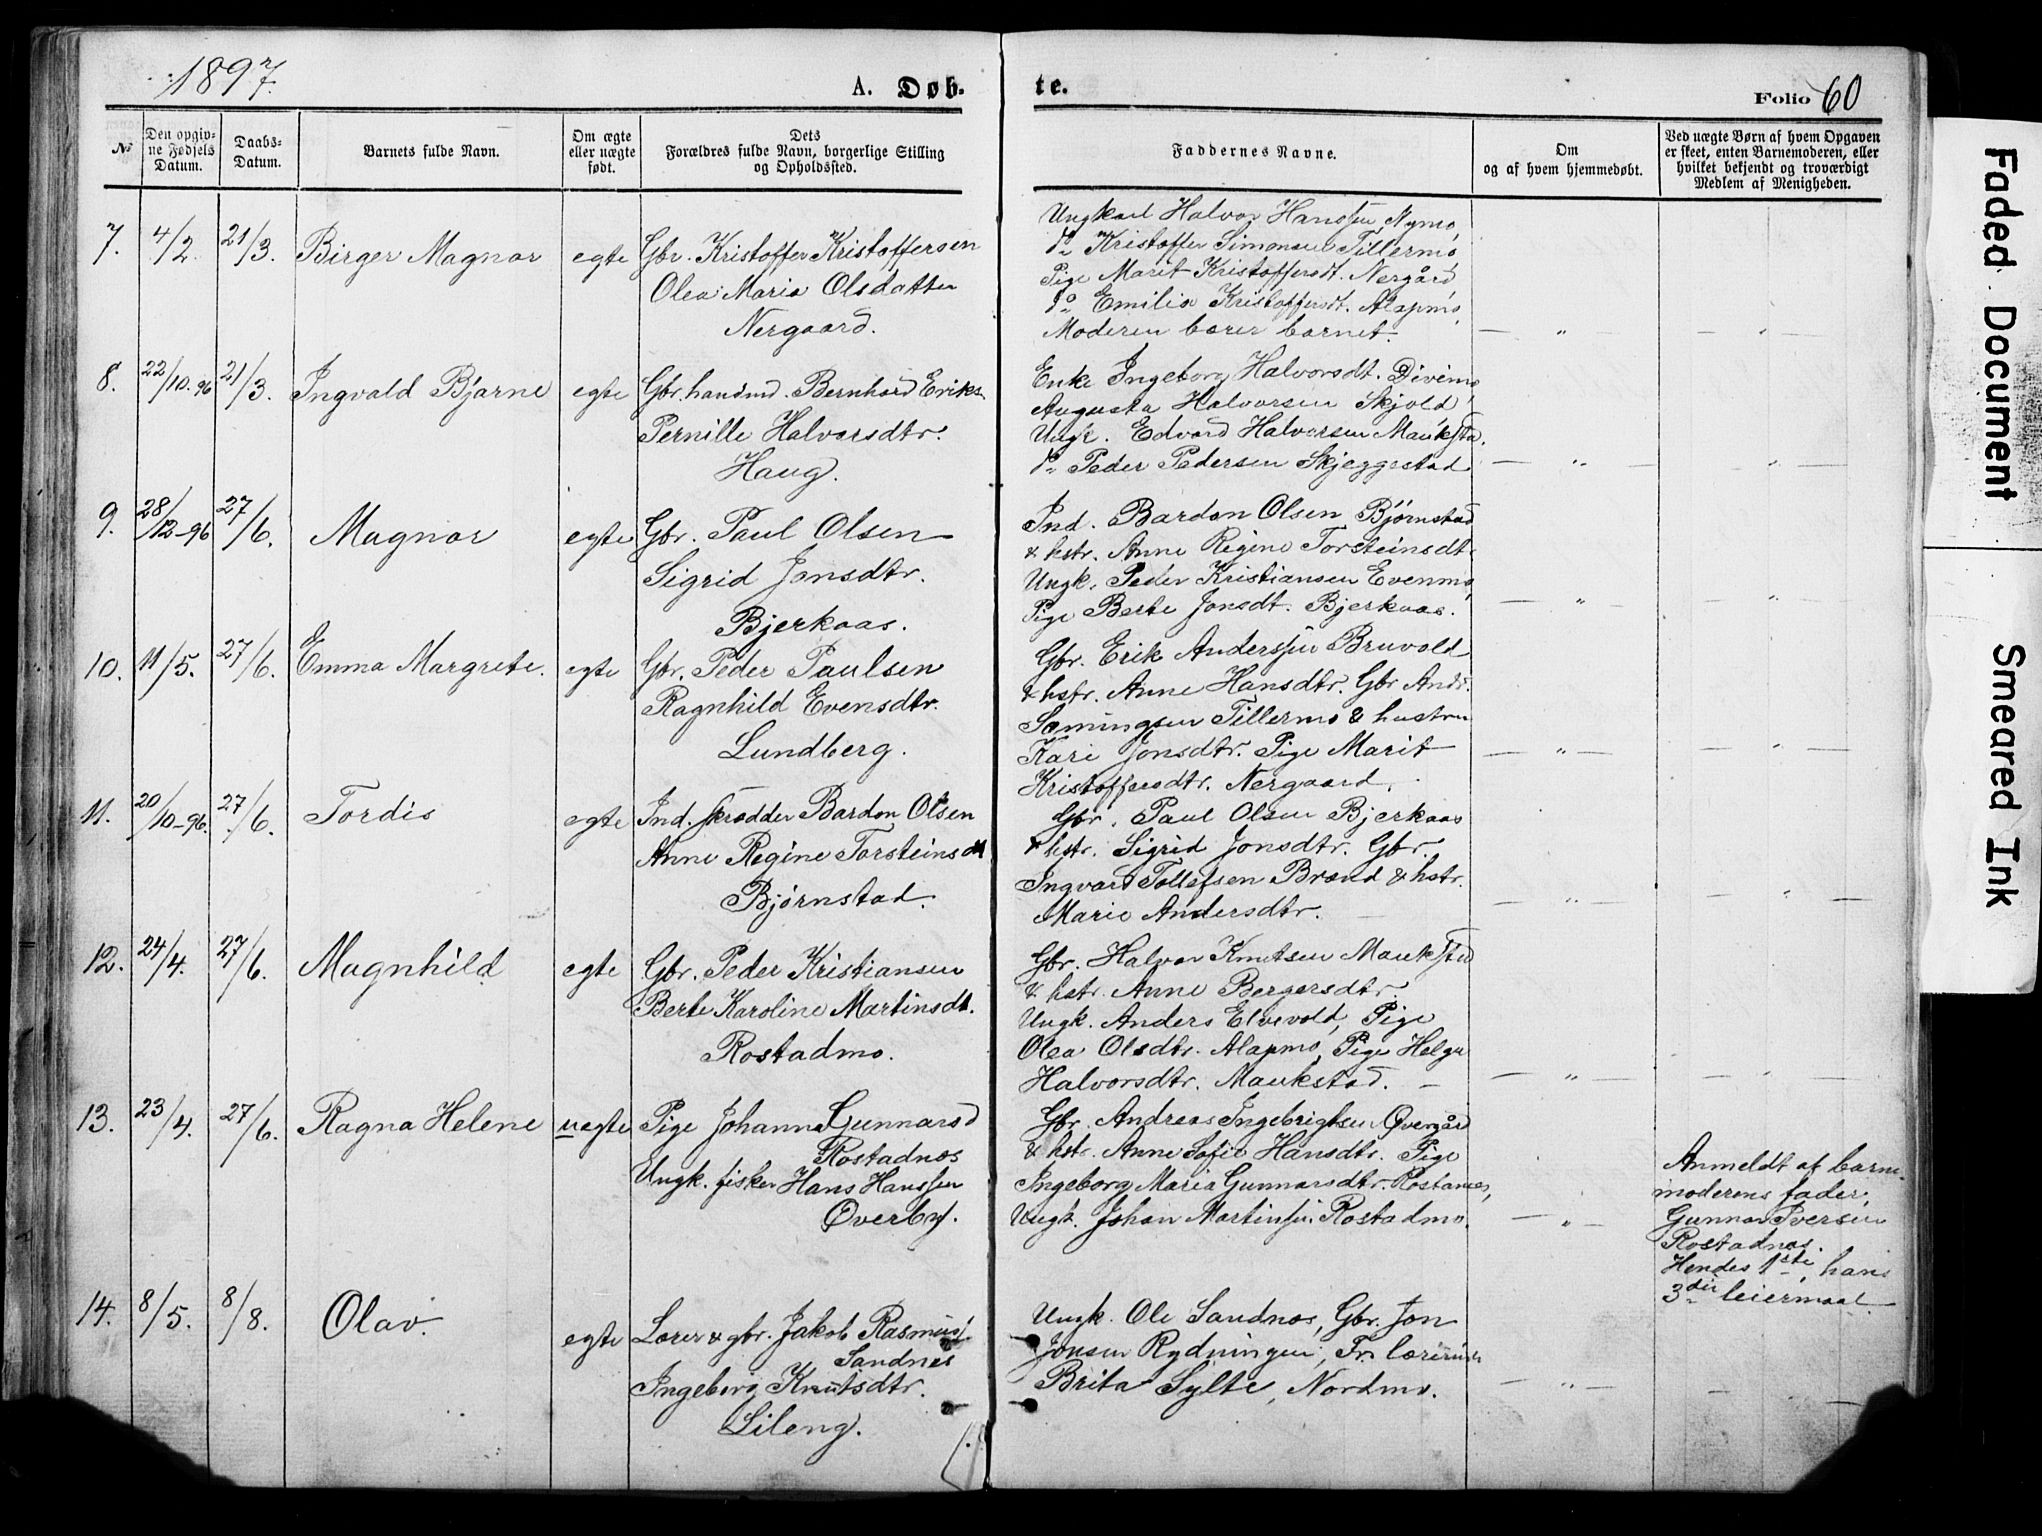 1897.
A. Døb-
te.
Folio 60
№
Den opgiv-
ne Fødsels
Datum.
Daabs-
Datum.
Barnets fulde Navn.
Om ægte
eller uægte
født.
Dets
Forældres fulde Navn, borgerlige Stilling
og Opholdssted.
Faddernes Navne.
Om
og af hvem hjemmedøbt.
Ved uægte Børn af hvem Opgaven
er skeet, enten Barnemoderen, eller
hvilket bekjendt og troværdigt
Medlem af Menigheden.
7. 4/2. 21/3. Birger Magnar egte Gbr. Kristoffer Kristoffersen
Olea Maria Olsdatter
Nergaard.
Ungkarl Halvor Hanssen Nymo,
do Kristoffer Simonsen Tillermo
Pige Marit Kristoffersdt. Nergård
do Emilie Kristoffersdt. Alapmo,
Moderen bærer barnet. — „ — — „ —
8. 22/10.96 21/3. Ingvald Bjarne egte Gbr. handmd. Bernhard Eriks.
Pernille Halvorsdtr.
Haug.
Enke Ingeborg Halvorsdt. Divimo,
Augusta Halvorsen Skjold,
Ungk. Edvard Halvorsen Maukstad.
do Peder Pedersen Skjeggestad — „ — „
9. 28/12-96 27/6. Magnar egte Gbr. Paul Olsen
Sigrid Jonsdtr.
Bjerkaas.
Ind. Bardon Olsen Bjørnstad
& hstr. Anne Regine Torsteinsdt.
Ungk. Peder Kristiansen Evenmo,
Pige Berte Jonsdt. Bjerkaas. — „ — — „ —
10. 11/5. 27/6. Emma Margrete. egte Gbr. Peder Paulsen
Ragnhild Evensdtr.
Lundberg.
Gbr. Erik Anderssen Bruvold
& hstr. Anne Hansdtr. Gbr Andr.
Sæmingsen Tillermo & hustru
Kari Jonsdtr. Pige Marit — „ — — „ —
Kristoffersdtr. Nergaard.
11. 20/10-96. 27/6. Tordis egte Ind. skrædder Bardon Olsen
Anne Regine Torsteinsdt
Bjørnstad.
Gbr. Paul Olsen Bjerkaas
& hstr. Sigrid Jonsdtr. Gbr.
Ingvart Tollefsen Brænd & hstr.
Marie Andersdtr. — „ — — „ —
12. 24/4. 27/6. Magnhild egte Gbr. Peder Kristiansen
Berte Karoline Martinsdt.
Rostadmo.
Gbr. Halvor Knutsen Maukstad
& hstr. Anne Bergersdtr.
Ungk. Anders Elvevold, Pige
Olea Olsdtr. Alapmo, Pige Helga
Halvorsdtr. Maukstad. — — „ — — „ —
13. 23/4. 27/6. Ragna Helene uegte Pige Johanna Gunnarsd
Rostadnæs
Ungk. fisker Hans Hanssen
Øverby.
Gbr. Andreas Ingebrigtsen Øvergård
& hstr. Anne Sofie Hansdtr. Pige
Ingeborg Maria Gunnarsdtr. Rostanæs,
Ungk. Johan Martinsen Rostadmo. — „ —
Anmeldt af barne-
moderens fader,
Gunnar Iversen
Rostadnæs.
Hendes 1ste, hans
3die leiermaal.
14. 8/5. 8/8. Olav. egte Lærer & gbr. Jakob Rasmuss.
Sandnes
Ingeborg Knutsdtr.
Lileng.
Ungk. Ole Sandnæs, Gbr. Jon
Jonsen Rydningen, Frk. lærerinde
Brita Sylte, Nordmo. — „ — — „ —
Faded Document
Smeared Ink